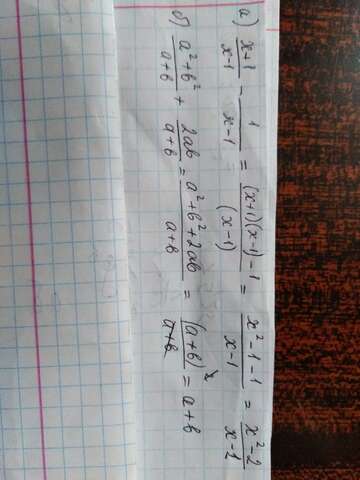 а) (x+1)/(x-1) - 1/(x-1) = ((x+1)(x-1)-1)/(x-1) = (x²-1-1)/(x-1) = (x²-2)/(x-1)
б) (a²+b²)/(a+b) + 2ab/(a+b) = (a²+b²+2ab)/(a+b) = (a+b)²/(a+b) = a+b